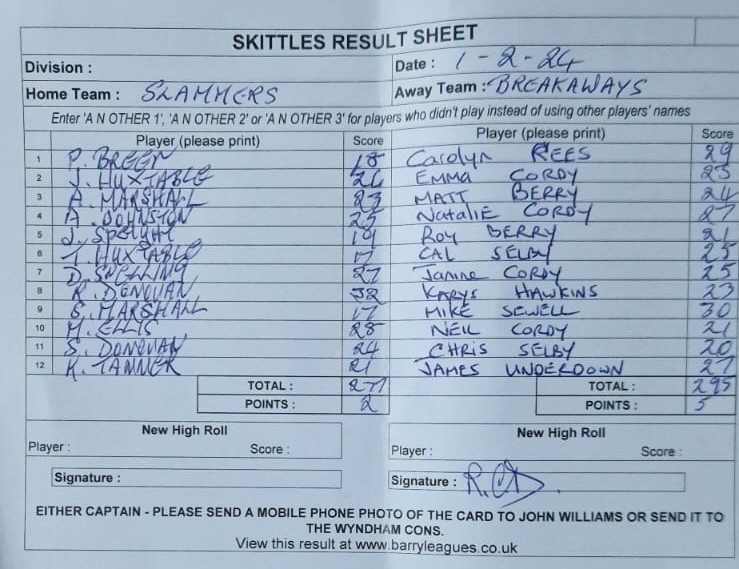 SKITTLES RESULT SHEET
Division :
Date : 1-2-24
Home Team : SLAMMERS
Away Team : BREAKAWAYS
Enter 'A N OTHER 1', 'A N OTHER 2' or 'A N OTHER 3' for players who didn't play instead of using other players' names
Player (please print) Score Player (please print) Score
1 P. BREEN 18 Carolyn REES 29
2 J. HUXTABLE 26 EMMA CORDY 23
3 A. MARSHALL 23 MATT BERRY 24
4 A. JOHNSTON 25 Natalie CORDY 27
5 J. Speight 19 ROY BERRY 21
6 T. HUXTABLE 17 CAL SELBY 25
7 D. SNELLING 27 Janine CORDY 25
8 R. DONOVAN 32 KARYS HAWKINS 23
9 S. MARSHALL 17 MIKE SEWELL 30
10 M. ELLIS 28 NEIL CORDY 21
11 S. DONOVAN 24 CHRIS SELBY 20
12 K. TANNER 21 JAMES UNDERDOWN 27
TOTAL : 277 TOTAL : 295
POINTS : 2 POINTS : 5
New High Roll New High Roll
Player : Score : Player : Score :
Signature : Signature :
EITHER CAPTAIN - PLEASE SEND A MOBILE PHONE PHOTO OF THE CARD TO JOHN WILLIAMS OR SEND IT TO
THE WYNDHAM CONS.
View this result at www.barryleagues.co.uk